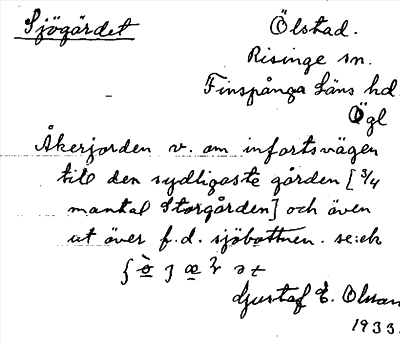 Sjögärdet
Ölstad.
Risinge sn.
Finspånga Läns hd.
Ögl
Åkerjorden v. om infartsvägen
till den sydligaste gården [3/4
mantal Storgården] och även
ut över f.d. sjöbottnen. se:ek
Gustaf E. Olsson
1933.